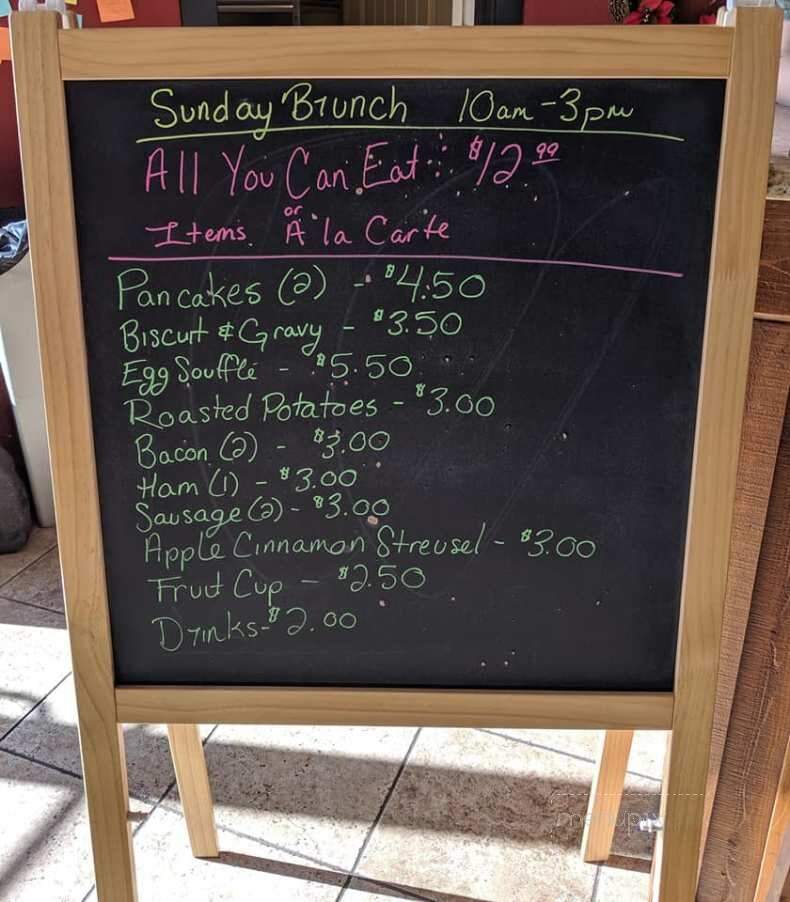 Sunday Brunch 10am-3pm
All You Can Eat: $12.99
or
Items A'la Carte
Pancakes (2) - $4.50
Biscuit & Gravy - $3.50
Egg Soufflé - $5.50
Roasted Potatoes - $3.00
Bacon (2) - $3.00
Ham (1) - $3.00
Sausage (2) - $3.00
Apple Cinnamon Streusel - $3.00
Fruit Cup - $2.50
Drinks - $2.00